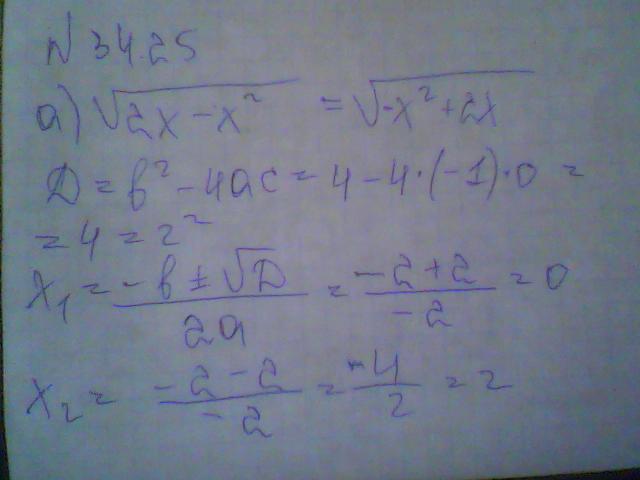 N 34.25
а) √(2x - x²) = √(-x² + 2x)
D = b² - 4ac = 4 - 4·(-1)·0 =
= 4 = 2²
x₁ = (-b ± √D)/(2a) = (-2+2)/(-2) = 0
x₂ = (-2-2)/(-2) = (-4)/2 = 2